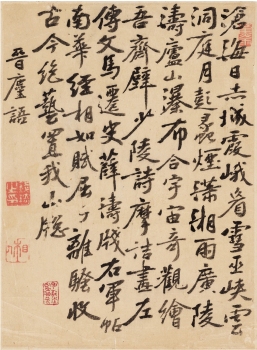 滄海日赤城霞峨眉雪巫峽雲
洞庭月彭蠡煙瀟湘雨廣陵
濤廬山瀑布合宇宙奇觀繪
吾齋壁少陵詩摩詰畫左
傳文馬遷史薛濤牋右軍帖
南華經相如賦屈子離騷收
古今絕藝置我山牕
晉語